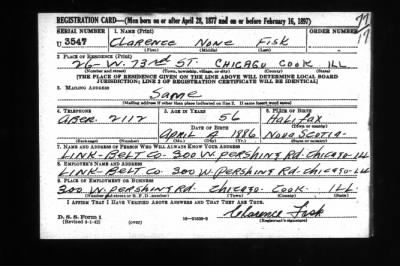 REGISTRATION CARD—(Men born on or after April 28, 1877 and on or before February 16, 1897)
SERIAL NUMBER 1. NAME (Print) ORDER NUMBER
U 3547 CLARENCE NONE FISK
(First) (Middle) (Last)
2. PLACE OF RESIDENCE (Print)
26 - W. 73rd ST. CHICAGO COOK ILL
(Number and street) (Town, township, village, or city) (County) (State)
[THE PLACE OF RESIDENCE GIVEN ON THE LINE ABOVE WILL DETERMINE LOCAL BOARD
JURISDICTION; LINE 2 OF REGISTRATION CERTIFICATE WILL BE IDENTICAL]
3. MAILING ADDRESS
SAME
[Mailing address if other than place indicated on line 2. If same insert word same]
4. TELEPHONE 5. AGE IN YEARS 6. PLACE OF BIRTH
ABER. 2112 56 HALIFAX
DATE OF BIRTH (Town or county)
APRIL 1886 NOVA SCOTIA
(Exchange) (Number) (Mo.) (Day) (Yr.) (State or country)
7. NAME AND ADDRESS OF PERSON WHO WILL ALWAYS KNOW YOUR ADDRESS
LINK-BELT CO. 300 W. PERSHING RD. CHICAGO-ILL
8. EMPLOYER'S NAME AND ADDRESS
LINK-BELT CO. 300 W. PERSHING RD. CHICAGO-ILL
9. PLACE OF EMPLOYMENT OR BUSINESS
300 W. PERSHING RD. CHICAGO COOK ILL
(Number and street or R. F. D. number) (Town) (County) (State)
I AFFIRM THAT I HAVE VERIFIED ABOVE ANSWERS AND THAT THEY ARE TRUE.
D. S. S. Form 1
(Revised 4-1-42) (over) Clarence Fisk
(Registrant's signature)